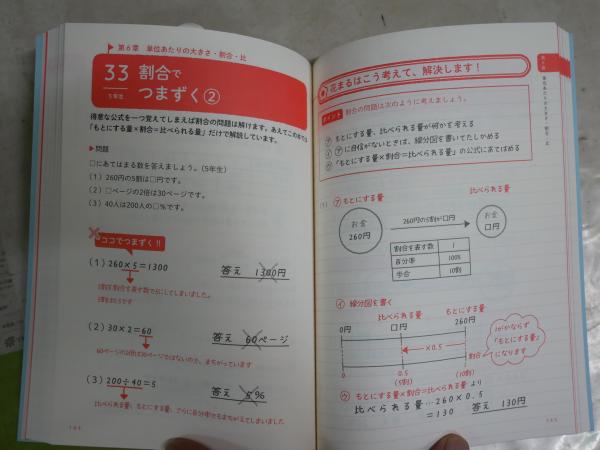 第6章 単位あたりの大きさ・割合・比
33
5年生
割合で
つまずく②
得意な公式を一つ覚えてしまえば割合の問題は解けます。あえてこの本では
「もとにする量×割合=比べられる量」だけで解説しています。
▶問題
□にあてはまる数を答えましょう。(5年生)
(1) 260円の5割は□円です。
(2) □ページの2倍は30ページです。
(3) 40人は200人の□%です。
ココでつまずく!!
(1) 260×5=1300
答え 1300円
(2) 30×2=60
答え 60ページ
60ページの2倍は30ページではないので、まちがっています
(3) 200÷40=5
答え 5%
比べられる量、もとにする量、さらに百分率でもまちがえてしまいました
144
花まるはこう考えて、解決します!
ポイント 割合の問題は次のように考えましょう。
㋐ もとにする量、比べられる量が何かを考える
㋑ ㋐に自信がないときは、線分図を書いてたしかめる
㋒ 「もとにする量×割合=比べられる量」の公式にあてはめる
(1) ㋐ もとにする量
比べられる量
お金
260円
260円の5割が□円
お金
□円
割合を表す数 1
百分率 100%
歩合 10割
㋑ 線分図を書く
比べられる量 もとにする量
0円 □円 260円
×0.5
0 0.5 1 割合
(5割) (10割)
1がかならず
「もとにする量」
になります
㋒ もとにする量×割合=比べられる量 より
比べられる量…260×0.5
=130 答え 130円
145
第6章 単位あたりの大きさ・割合・比